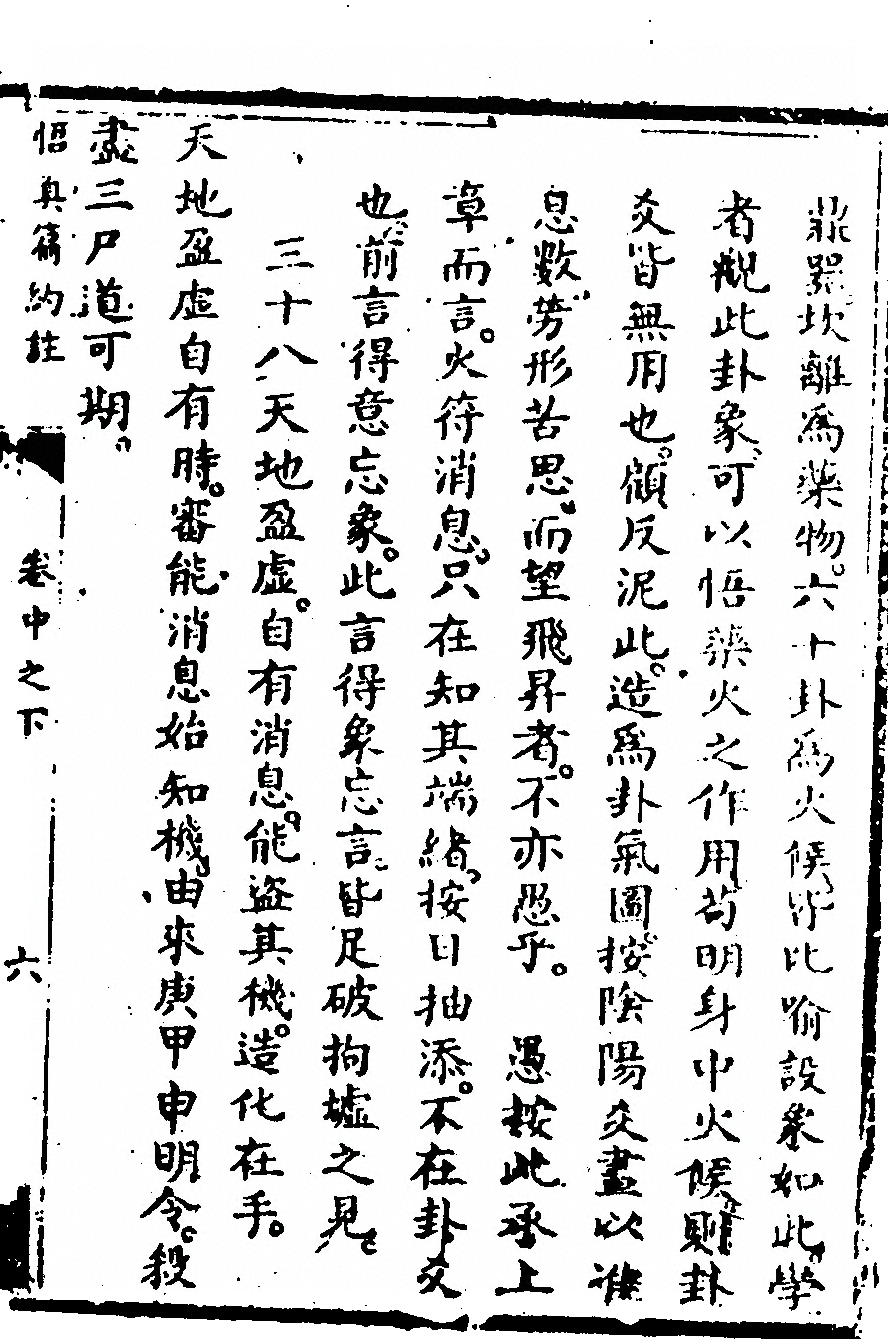 鼎器。坎離為藥物。六十卦為火候。皆比喻設象如此。學
者觀此卦象。可以悟藥火之作用。苟明身中火候。則卦
爻皆無用也。顧反泥此。造為卦氣圖。按陰陽爻畫以準
息數。勞形苦思。而望飛昇者。不亦愚乎。 愚按此承上
章而言。火符消息。只在知其端緒。按日抽添。不在卦爻
也。前言得意忘象。此言得象忘言。皆足破拘墟之見。
三十八天地盈虛。自有消息。能盜其機。造化在手。
天地盈虛自有時。審能消息始知機。由來庚甲申明令。殺
盡三尸道可期。
悟真篇約註 卷中之下 六